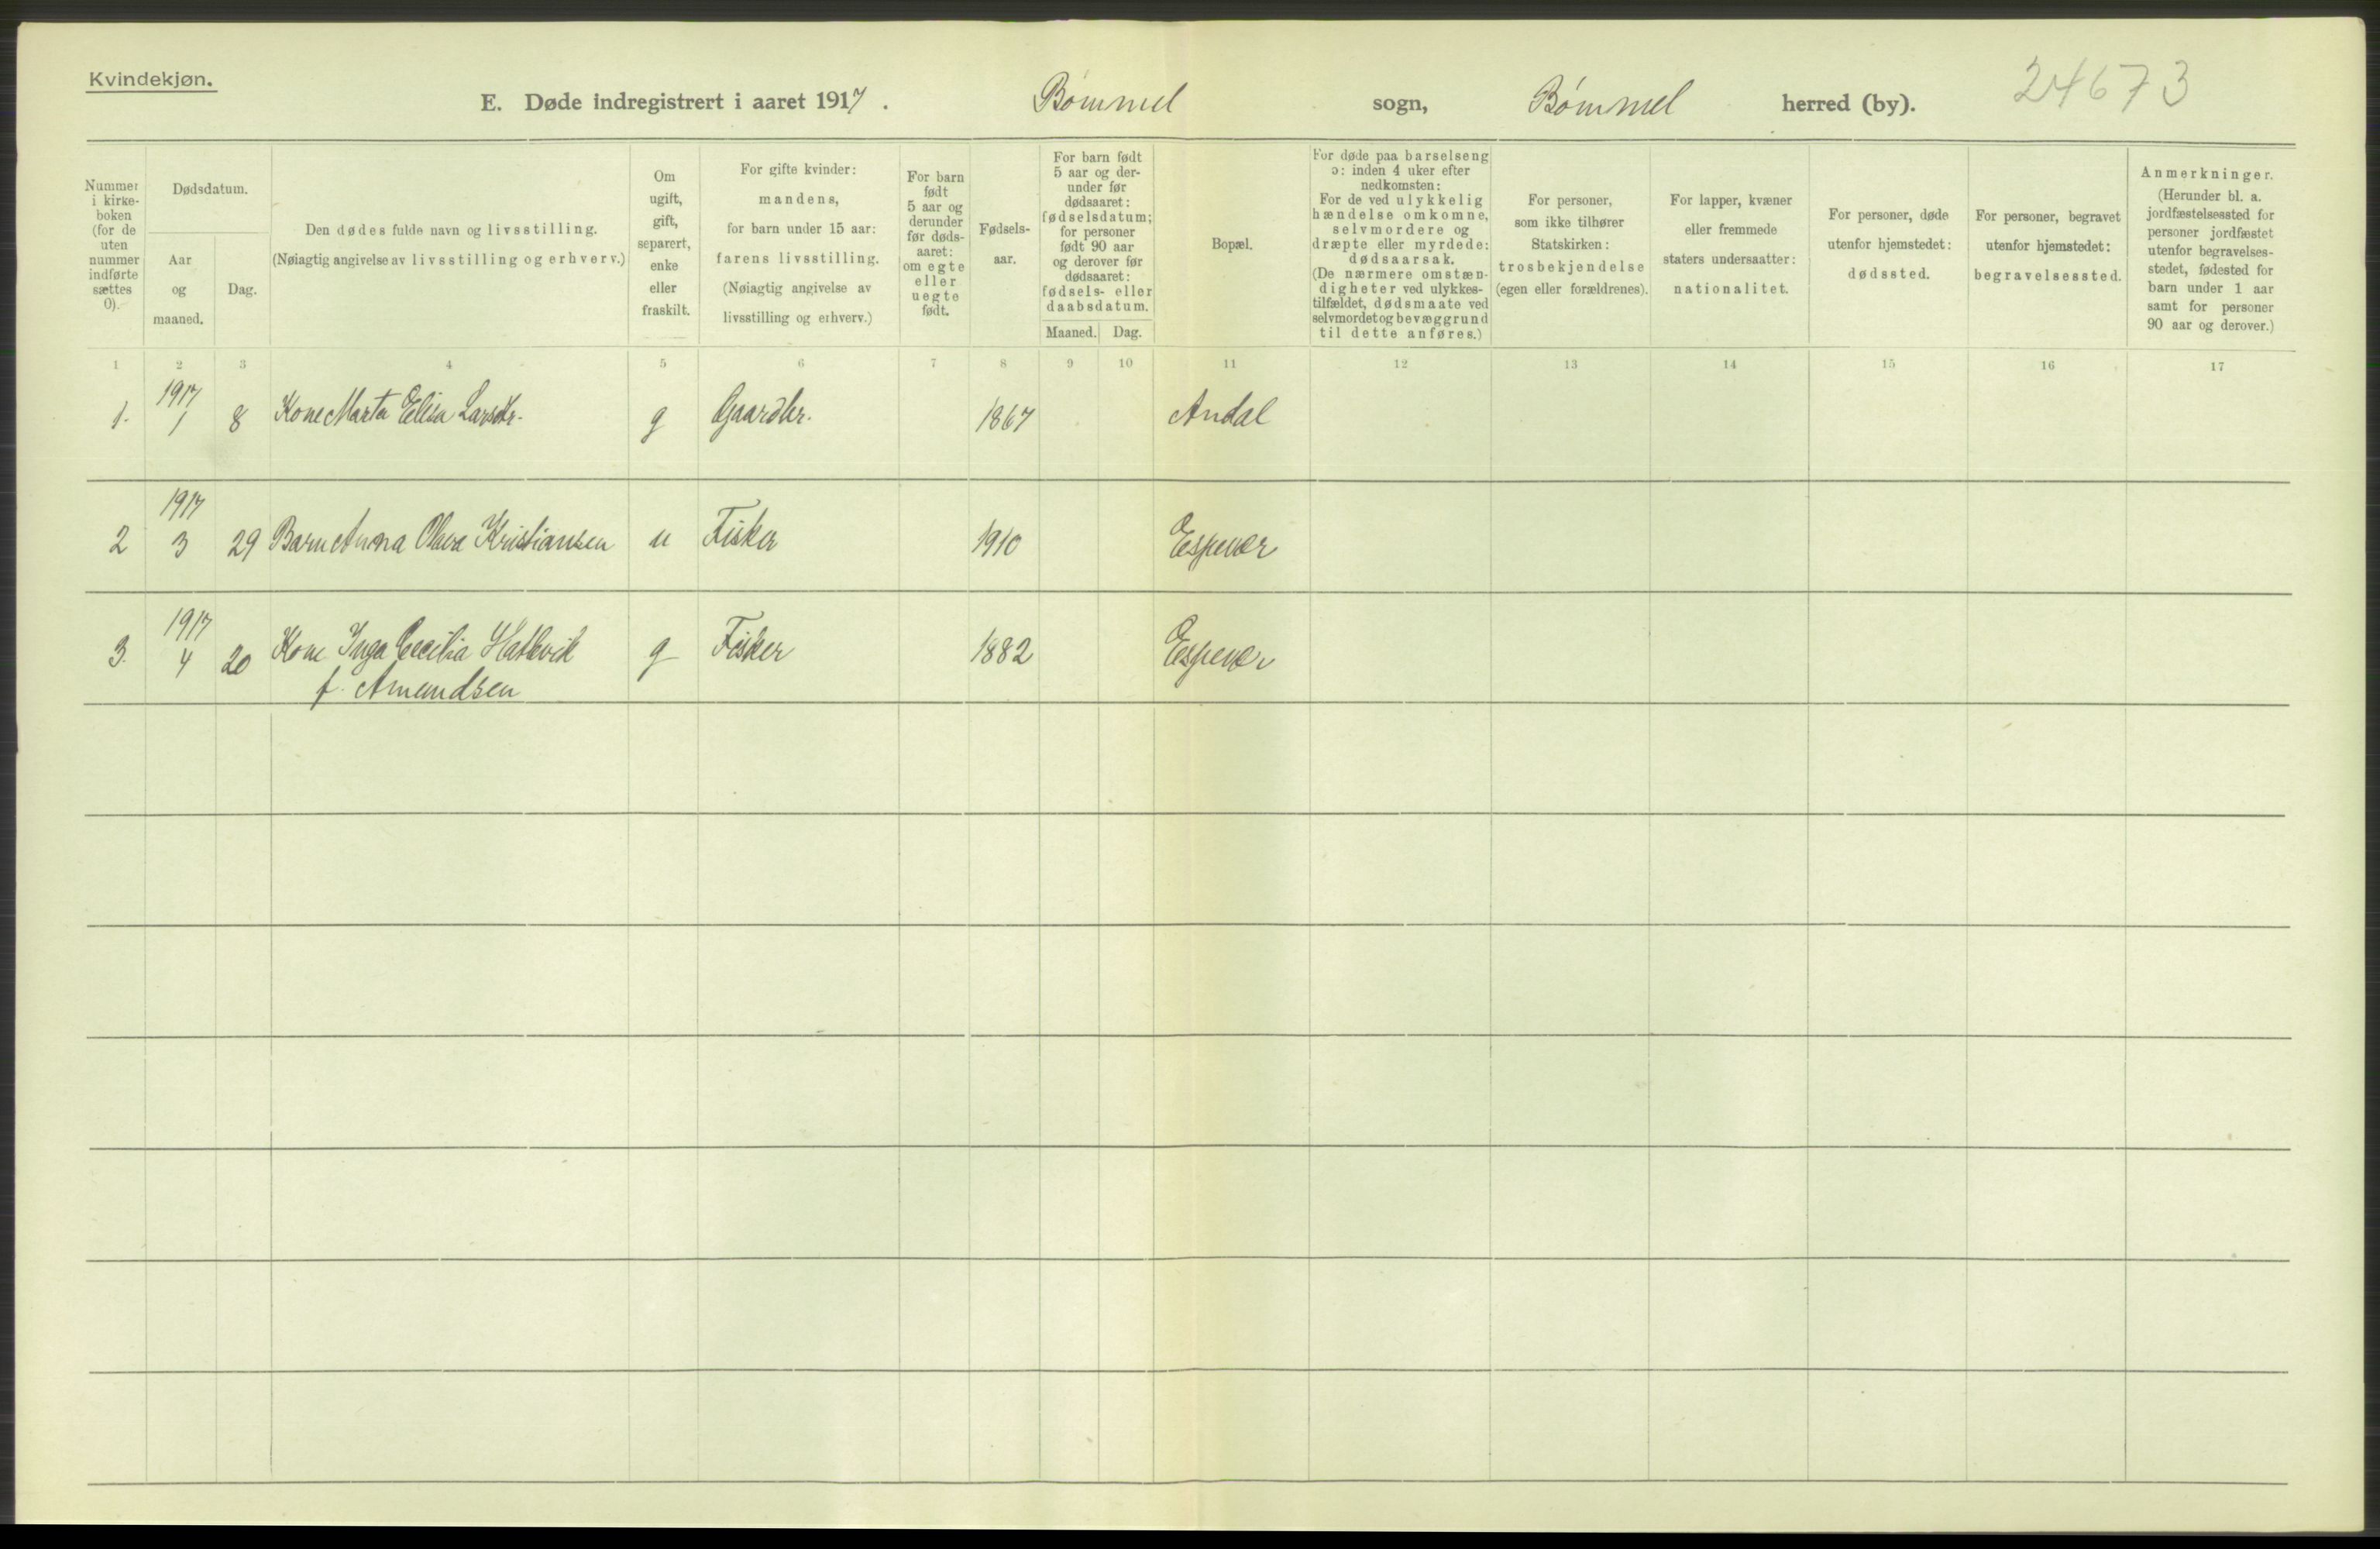 Kvindekjøn.
E. Døde indregistrert i aaret 1917. Bømmel sogn, Bømmel herred (by). 24673
Nummer
i kirke-
boken
(for de
uten
nummer
indførte
sættes
0).
Dødsdatum.
Aar
og
maaned.
Dag.
Den dødes fulde navn og livsstilling.
(Nøiagtig angivelse av livsstilling og erhverv.)
Om
ugift,
gift,
separert,
enke
eller
fraskilt.
For gifte kvinder:
mandens,
for barn under 15 aar:
farens livsstilling.
(Nøiagtig angivelse av
livsstilling og erhverv.)
For barn
født
5 aar og
derunder
før døds-
aaret:
om egte
eller
uegte
født.
Fødsels-
aar.
For barn født
5 aar og der-
under før
dødsaaret:
fødselsdatum;
for personer
født 90 aar
og derover før
dødsaaret:
fødsels- eller
daabsdatum.
Maaned. Dag.
Bopæl.
For døde paa barselseng
ɔ: inden 4 uker efter
nedkomsten:
For de ved ulykkelig
hændelse omkomne,
selvmordere og
dræpte eller myrdede:
dødsaarsak.
(De nærmere omstæn-
digheter ved ulykkes-
tilfældet, dødsmaate ved
selvmordet og bevæggrund
til dette anføres.)
For personer,
som ikke tilhører
Statskirken:
trosbekjendelse
(egen eller forældrenes).
For lapper, kvæner
eller fremmede
staters undersaatter:
nationalitet.
For personer, døde
utenfor hjemstedet:
dødssted.
For personer, begravet
utenfor hjemstedet:
begravelsessted.
Anmerkninger.
(Herunder bl. a.
jordfæstelsessted for
personer jordfæstet
utenfor begravelses-
stedet, fødested for
barn under 1 aar
samt for personer
90 aar og derover.)
1 2 3 4 5 6 7 8 9 10 11 12 13 14 15 16 17
1917
1. 1 8 Kone Marta Elisa Larsdtr. g Gaardbr. 1867 Andal
1917
2 3 29 Barn Anna Olava Kristiansen u Fisker 1910 Espevær
1917
3. 4 20 Kone Inga Cecilia Hatlevik g Fisker 1882 Espevær
f. Amundsen